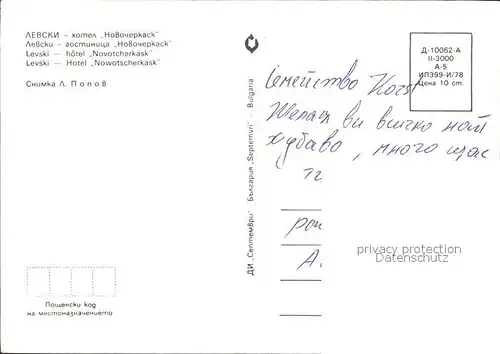 ЛЕВСКИ — хотел „Новочеркаск"
Левски — гостиница „Новочеркаск"
Levski — hôtel „Novotcherkask"
Levski — Hotel „Nowotscherkask"
Снимка Л. Попов
Пощенски код
на местоназначението
ДИ „Септември" — България „Septemvri" — Bulgaria
Д-10062-А
II-3000
А-5
ИПЗ99-И/78
Цена 10 cm.
Семейство
Желая ви всичко най
хубаво, много щас
А.
privacy protection
Datenschutz